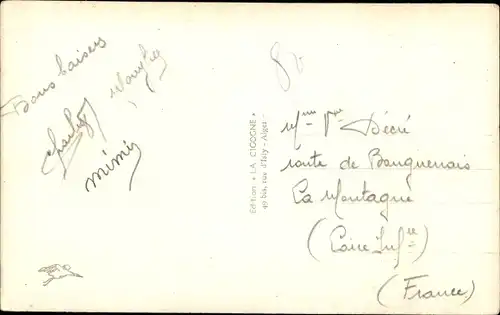 Bons baisers
Charley
Mimi
Edition « LA CIGOGNE »
49 bis, rue d'Isly - Alger
Mme Vve Décré
route de Bouguenais
La Montagne
(Loire Infre)
(France)